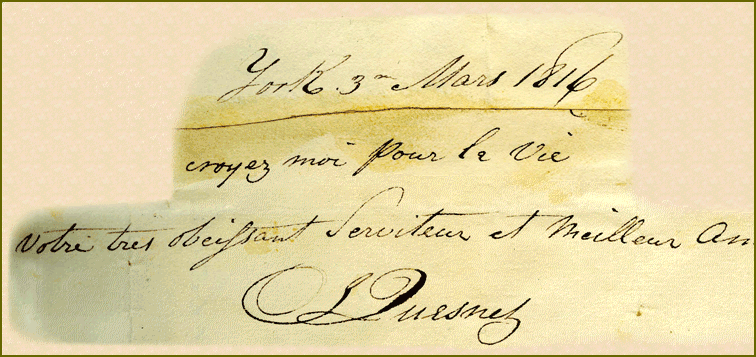 York 3me Mars 1816
croyez moi pour la Vie
Votre tres obeissant Serviteur et Meilleur Am
L Quesnel